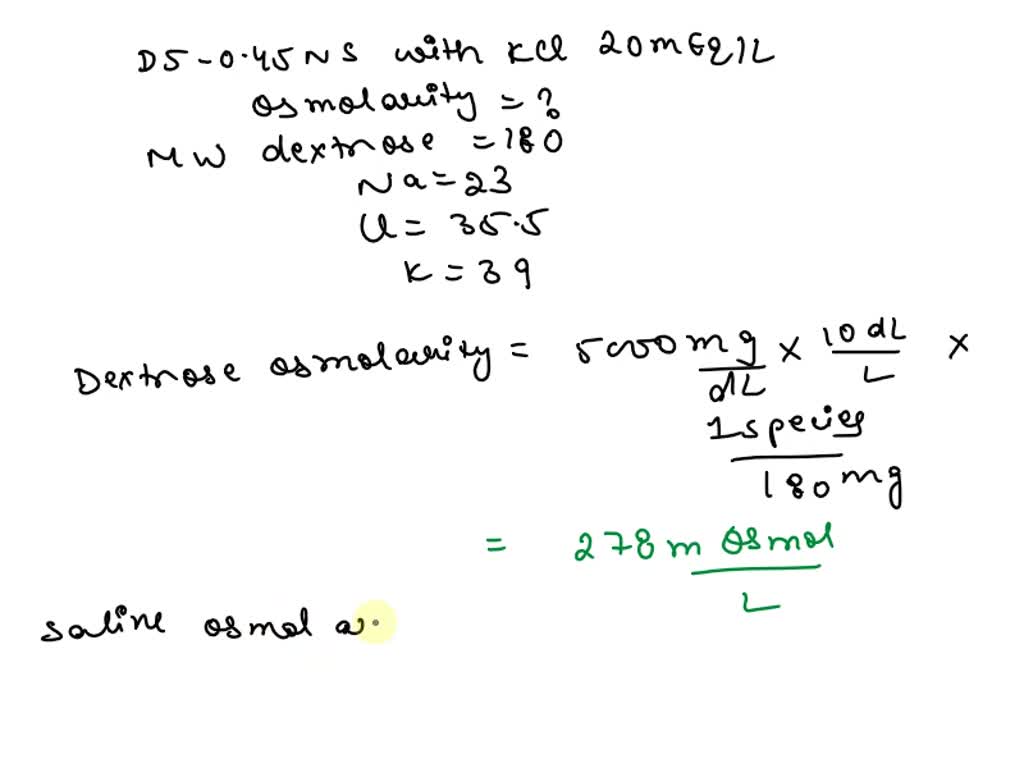 D5-0.45NS with KCl 20mEq/L
Osmolarity = ?
MW dextrose = 180
Na = 23
Cl = 35.5
K = 39
Dextrose osmolarity = 5000 mg/dL × 10 dL/L ×
1 species/180 mg
= 278 m Osmol/L
Saline osmol ar